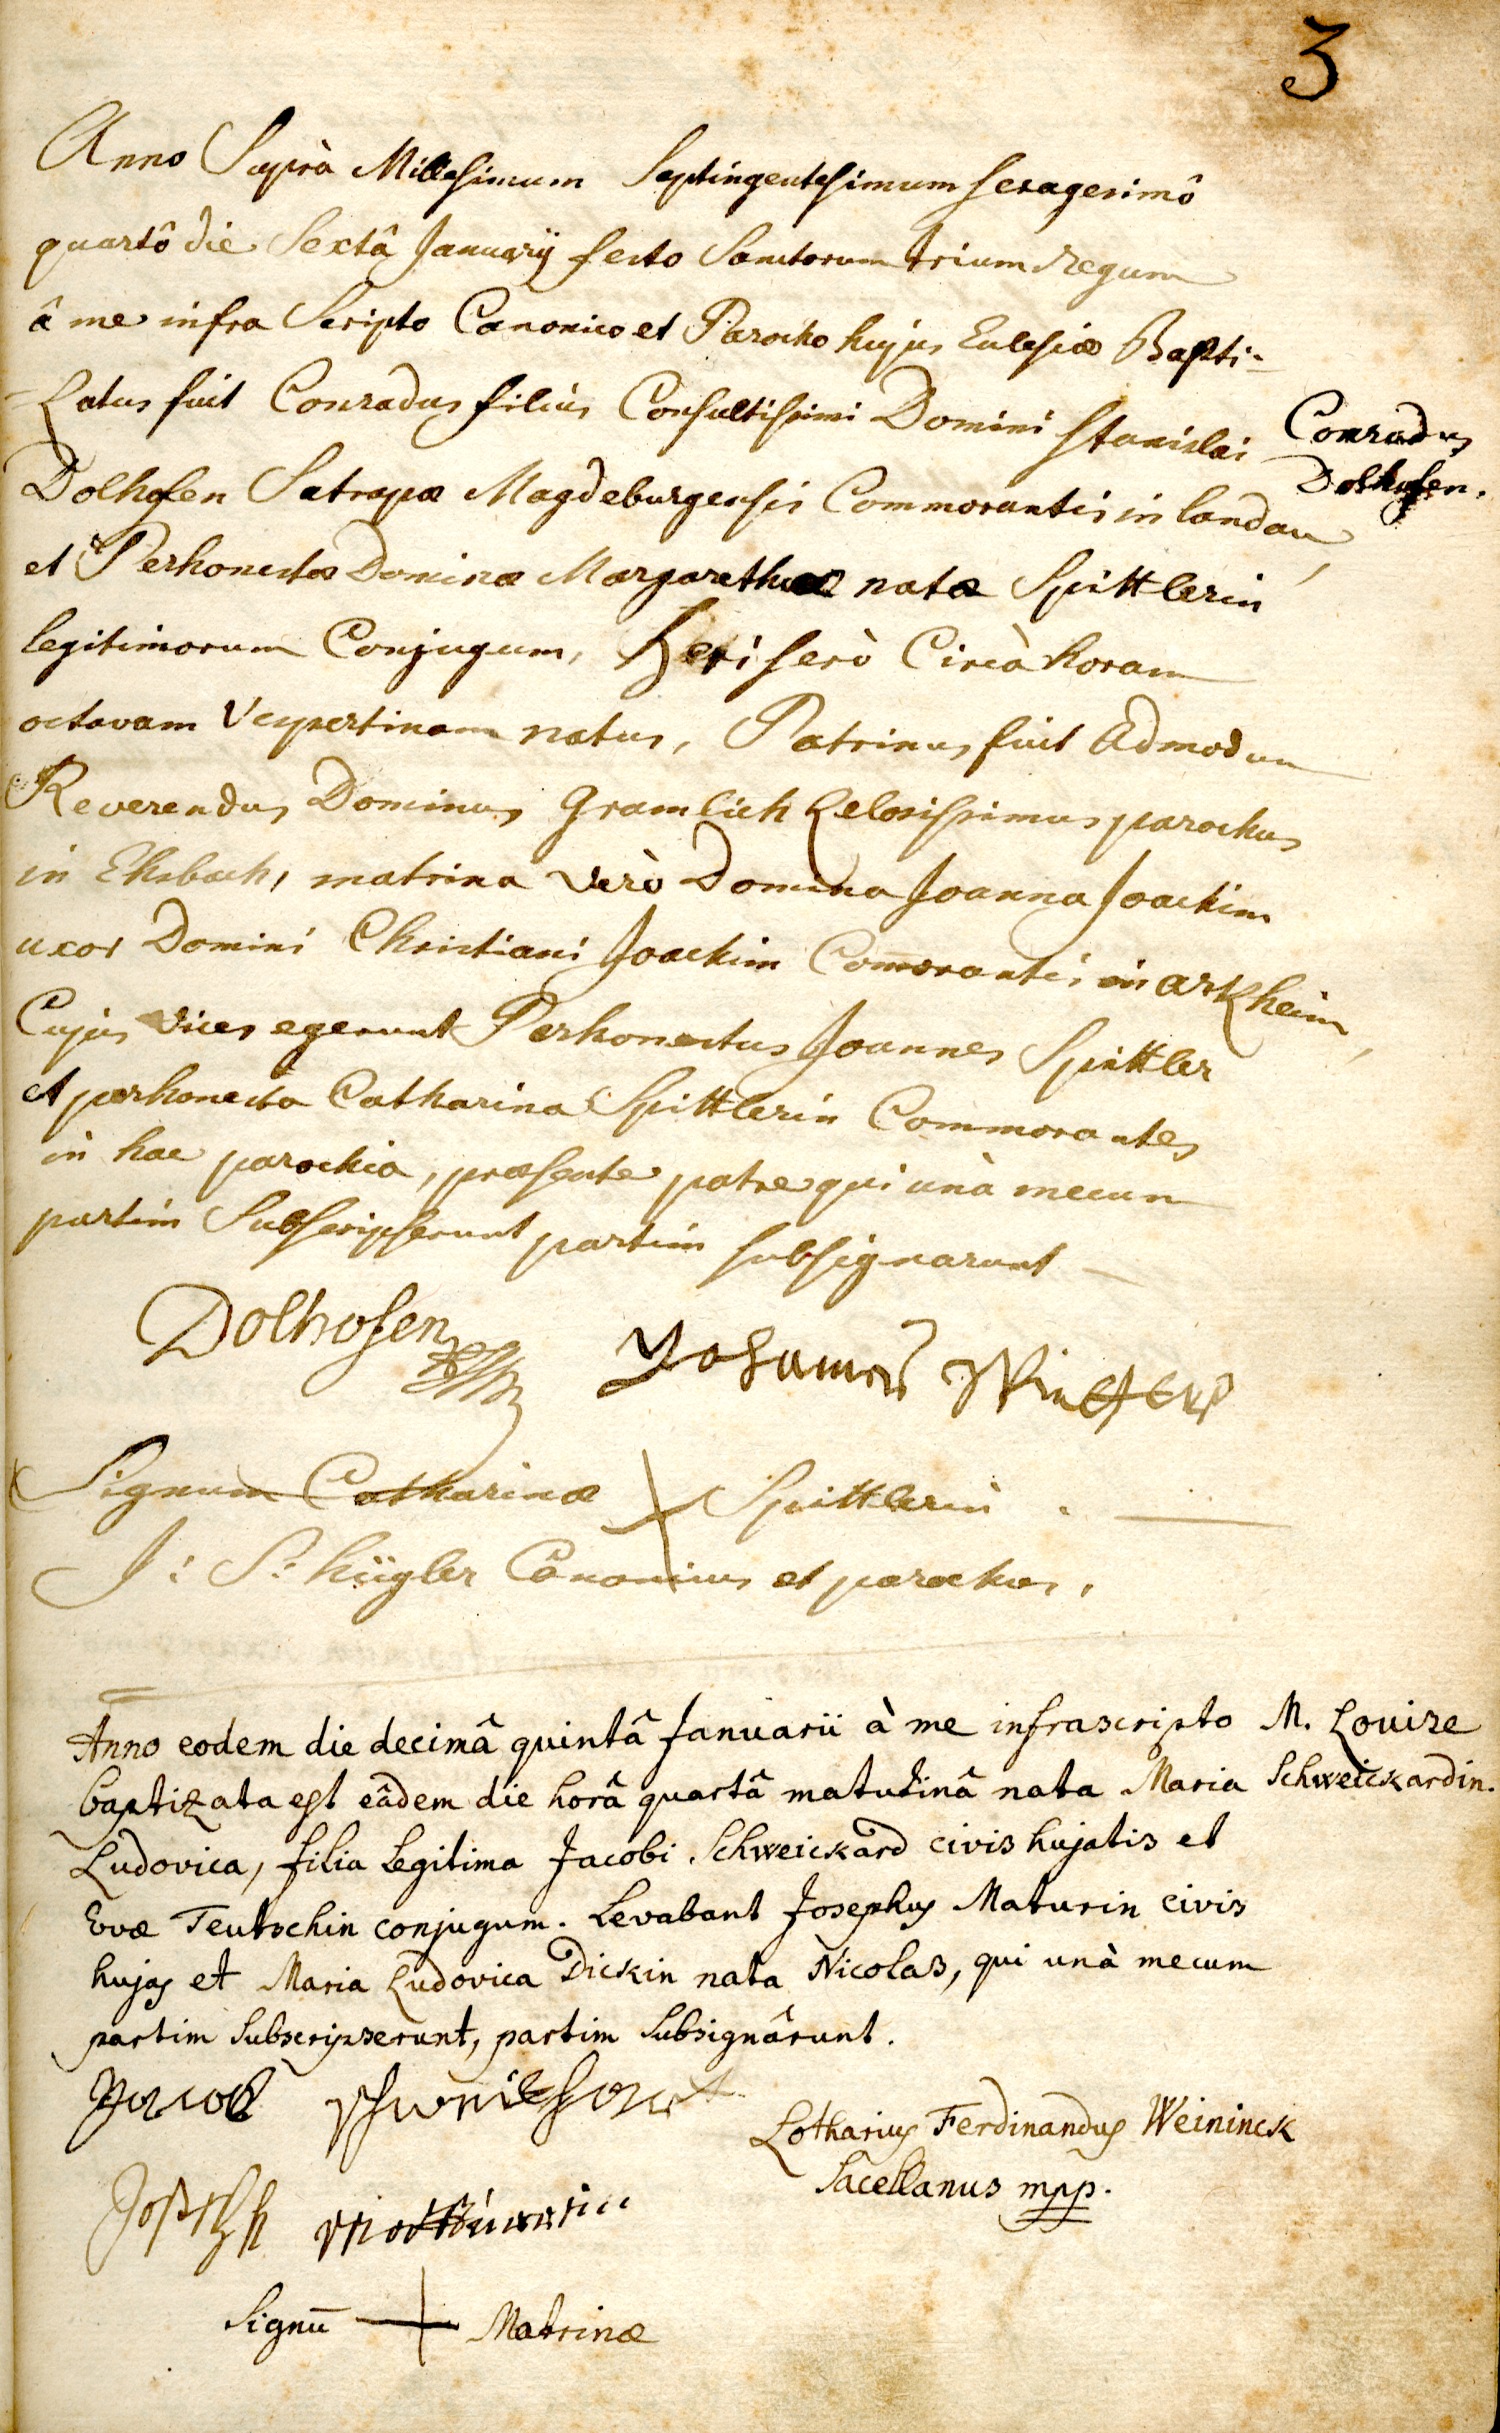 3
Anno Suprà Millesimum Septingentesimum sexagesimô
quartô die Sextâ Januarÿ festo Sanctorum trium Regum
â me infra Scripto Canonico et Parocho hujus Eclesiæ Bapti-
-zatus fuit Conradus filius Consultissimi Domini Stanislai
Conradus
Dolhofen.
Dolhofen Satrapæ Magdeburgensis Commorantis in landau,
et Perhonestæ Dominæ Margarethæ natæ Spittlerin
legitimorum Conjugum, Heri serò Circà horam
octavam Vespertinam natus, Patrinus fuit Admodum
Reverendus Dominus Gramlich Zelosissimus parochus
in, matrina Verò Domina Joanna Joachim
uxor Domini Christiani Joachim Com̄orantis in arzheim,
Cujus Vices egerunt Perhonestus Joannes Spittler
et perhonesta Catharina Spittlerin Commorantes
in hac parochia, præsente patre qui unà mecum
partim Subscripserunt partim subsignarunt
Dolhofen
Johannes
Signum Catharinæ Spittlerin.
J: S: hügler Canonicus et parochus.
Anno eodem die decimâ quintâ Januarii à me infrascripto
M. Louise
Schweickardin.
baptizata est eâdem die horâ quartâ matutinâ nata Maria
Ludovica, filia legitima Jacobi Schweickard civis hujatis et
Evæ Teutschin conjugum. Levabant Josephus Maturin civis
hujas et Maria Ludovica Dickin nata Nicolas, qui unà mecum
partim subscripserunt, partim subsignârunt.
Jacob
Lotharius Ferdinandus Weininck
Sacellanus mpp.
Joseph
Signū Matrinæ